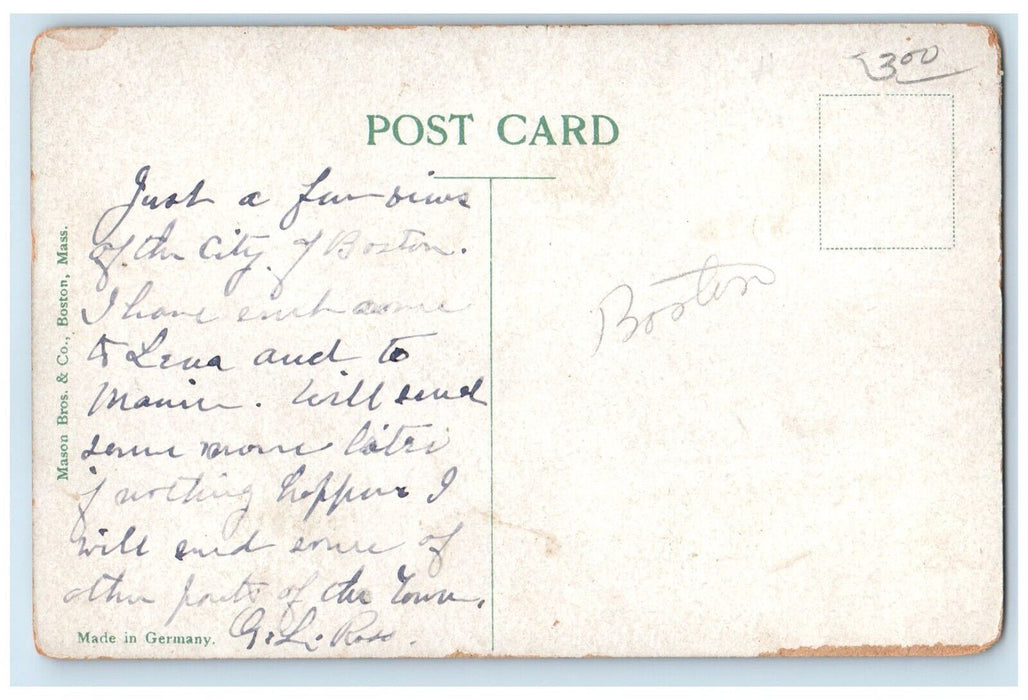 300
POST CARD
Just a few views
of the City of Boston.
I have sent some
to Lena and to
Mamie. Will send
some more later
if nothing happens I
will send some of
other parts of the Town.
G. L. Ross.
Boston
Mason Bros. & Co., Boston, Mass.
Made in Germany.